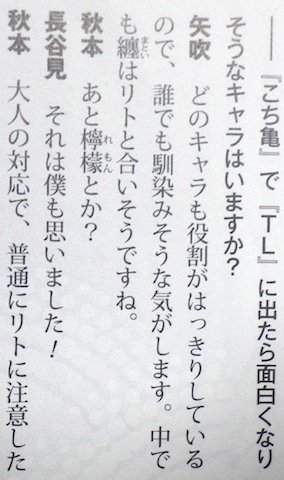 ――『こち亀』で『TL』に出たら面白くなり
そうなキャラはいますか？
矢吹　どのキャラも役割がはっきりしている
ので、誰でも馴染みそうな気がします。中で
も纏はリトと合いそうですね。
まとい
秋本　あと檸檬とか？
れもん
長谷見　それは僕も思いました！
秋本　大人の対応で、普通にリトに注意した